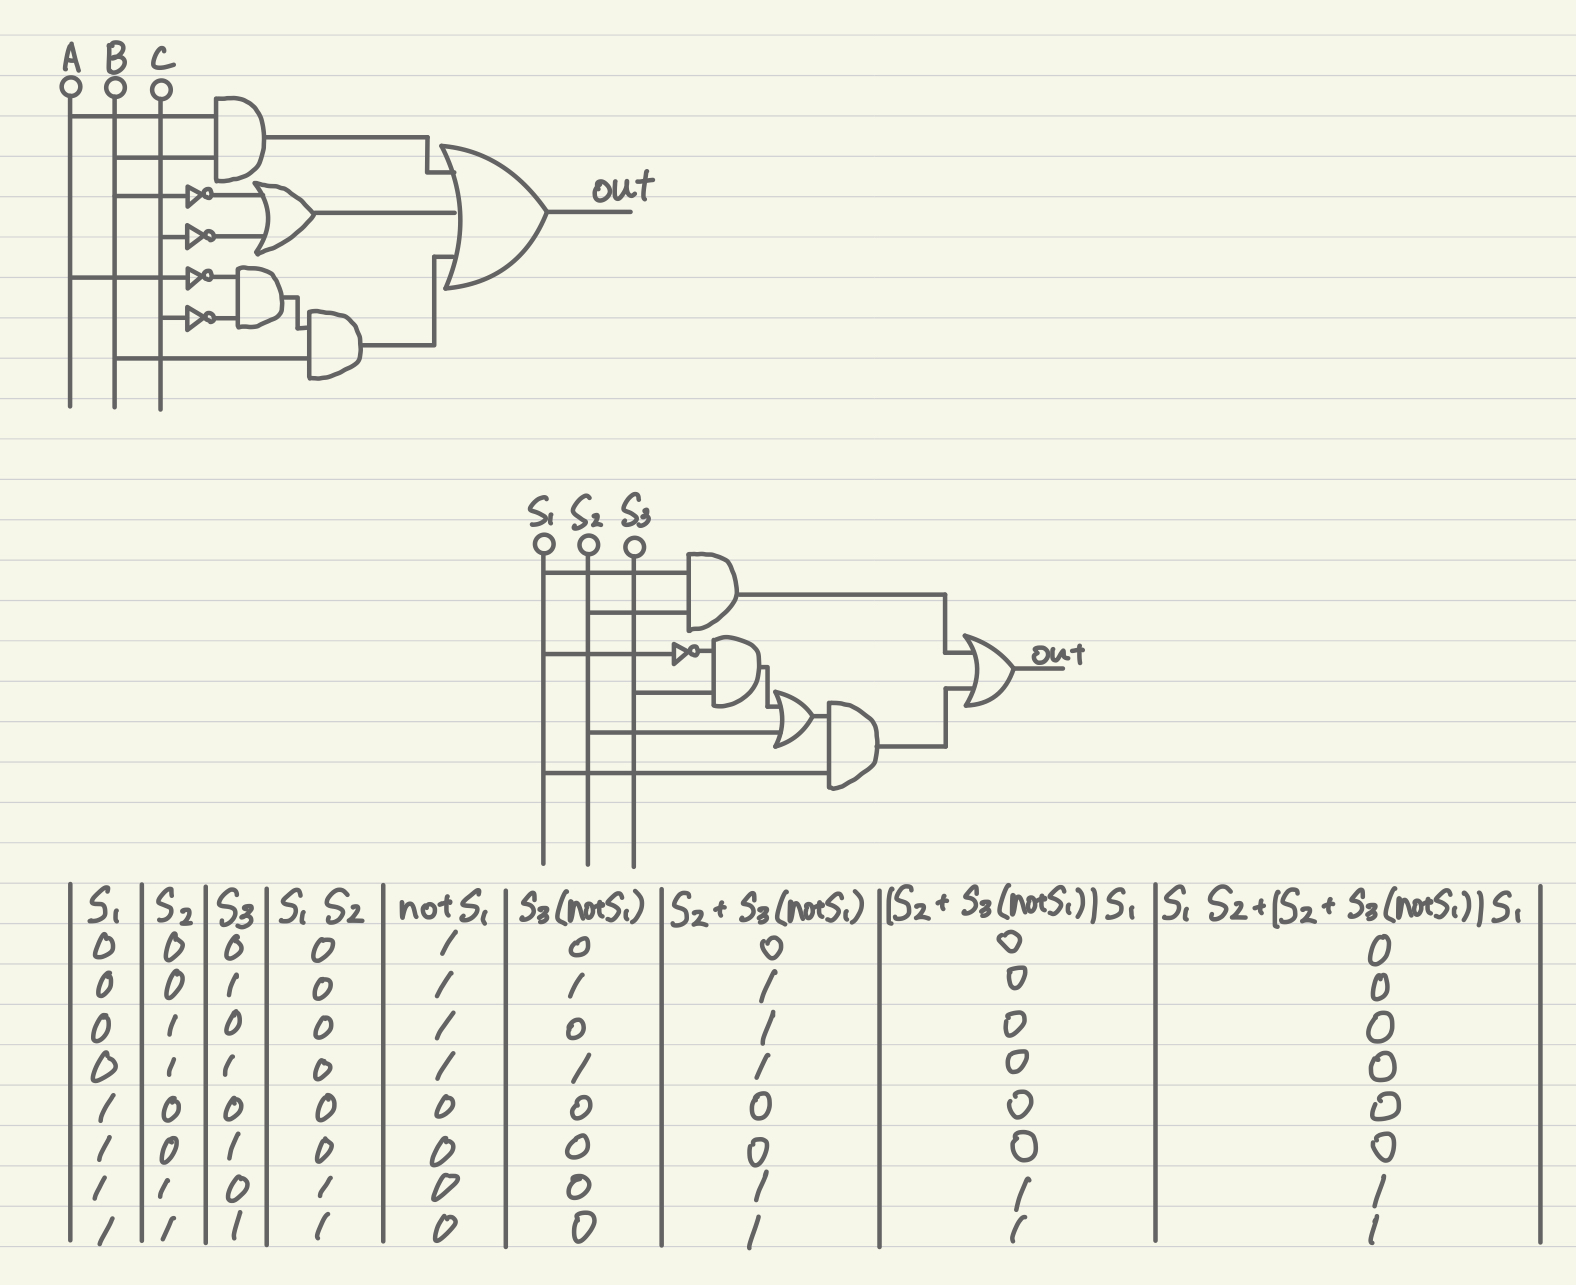 A B C
out
S₁ S₂ S₃
out
S₁ S₂ S₃ S₁ S₂ not S₁ S₃(notS₁) S₂+ S₃(notS₁) (S₂+ S₃(notS₁))S₁ S₁ S₂+(S₂+ S₃(notS₁))S₁
0 0 0 0 1 0 0 0 0
0 0 1 0 1 1 1 0 0
0 1 0 0 1 0 1 0 0
0 1 1 0 1 1 1 0 0
1 0 0 0 0 0 0 0 0
1 0 1 0 0 0 0 0 0
1 1 0 1 0 0 1 1 1
1 1 1 1 0 0 1 1 1